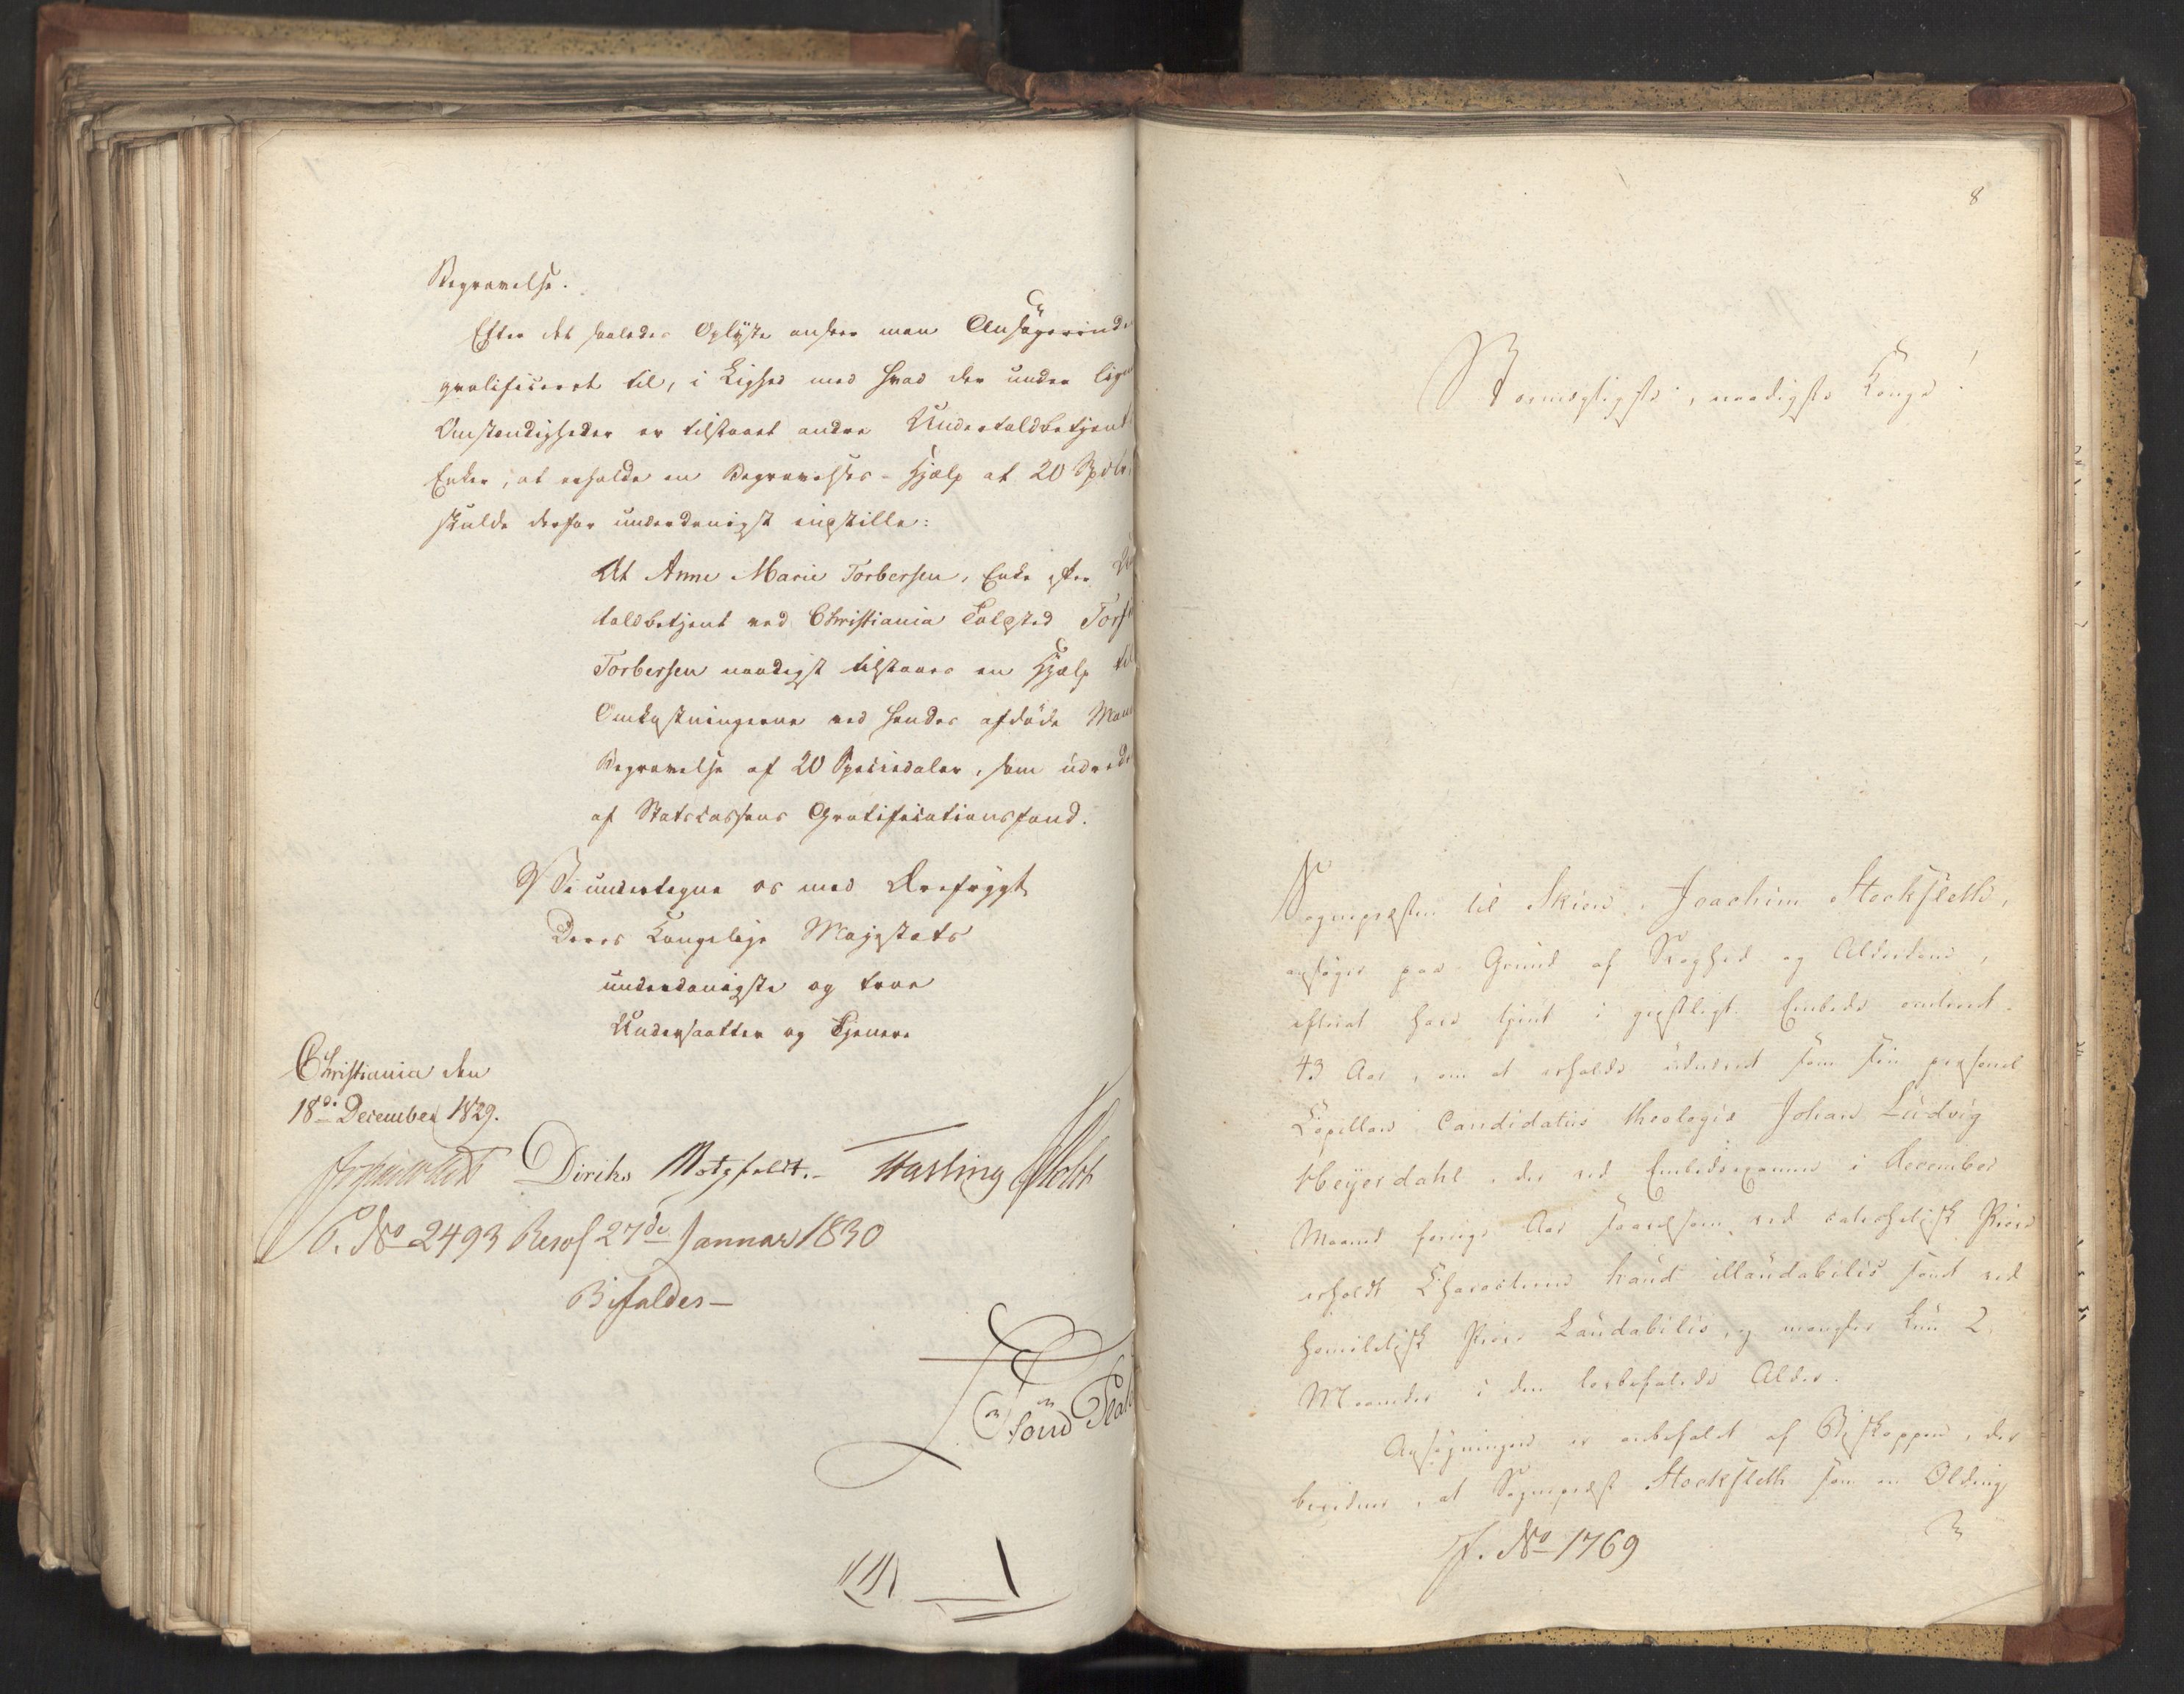 Begravelse.
Efter det saaledes Oplyste ansees man Ansøgerinde
qvalificeret til, i Lighed med hvad der under lign
Omstændigheder er tilstaaet andre Undertoldbetjent
Enker, at erholde en Begravelses-Hjælp af 20 Spdlr.
skulde derfor underdanigst indstille:
At Anne Marie Torbersen, Enke efter
toldbetjent ved Christiania Toldsted
Torbersen naadigst tilstaaes en Hjælp til
Omkostningerne ved hendes afdøde Man
Begravelse af 20 Speciedaler, som udrede
af Statscassens Gratificationsfond.
Vi undertegne os med Ærefrygt
Deres Kongelige Majestæts
underdanigste og troe
Undersaatter og Tjenere
Christiania den
18de December 1829.
Diriks Motzfeldt. Fasting Holst
P. No 2493 Resol 27de Januar 1830
Bifaldes—
1
8
Stormægtigste, naadigste Konge!
Sognepræsten til Skien, Joachim Stockfleth,
ansøger paa Grund af Svaghed og Alderdom,
efterat have tjent i geistligt Embede omtrent
43 Aar, om at erholde udnævnt som sin personel
Capellan Candidatus theologiæ Johan Ludvig
Heyerdahl, der ved Embedsexamen i December
Maaned forrige Aar saavelsom ved catechetisk Prøve
erholdt Characteren haud illaudabilis samt ved
homiletisk Prøve Laudabilis, og mangler kun 2
Maaneder i den lovbefalede Alder.
Ansøgningen er anbefalet af Biskoppen, der
bevidner, at Sognepræst Stockfleth som en Olding
J. No 1769